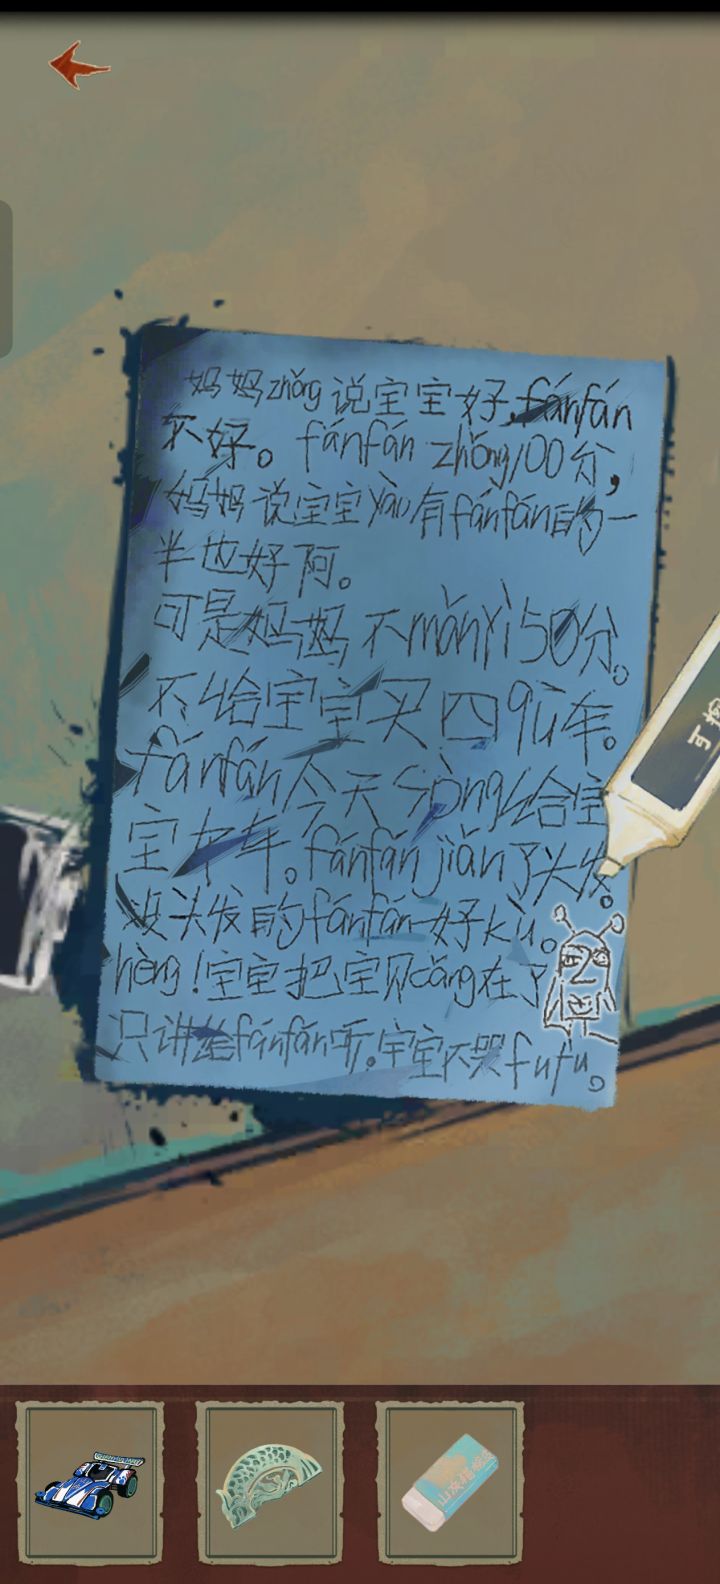 妈妈zhǒng说宝宝好,fánfán
不好。fánfán zhǒng100分,
妈妈说宝宝yào有fánfán的一
半也好阿。
可是妈妈不mǎnyì50分。
不给宝宝买四qù车。
fánfán今天sòng给宝
宝
车。fánfán jiǎn了头发。
没头发的fánfán好kù。
hèng!宝宝把宝贝cáng在了
只讲给fánfán听。宝宝不哭fufu。
山灰猫